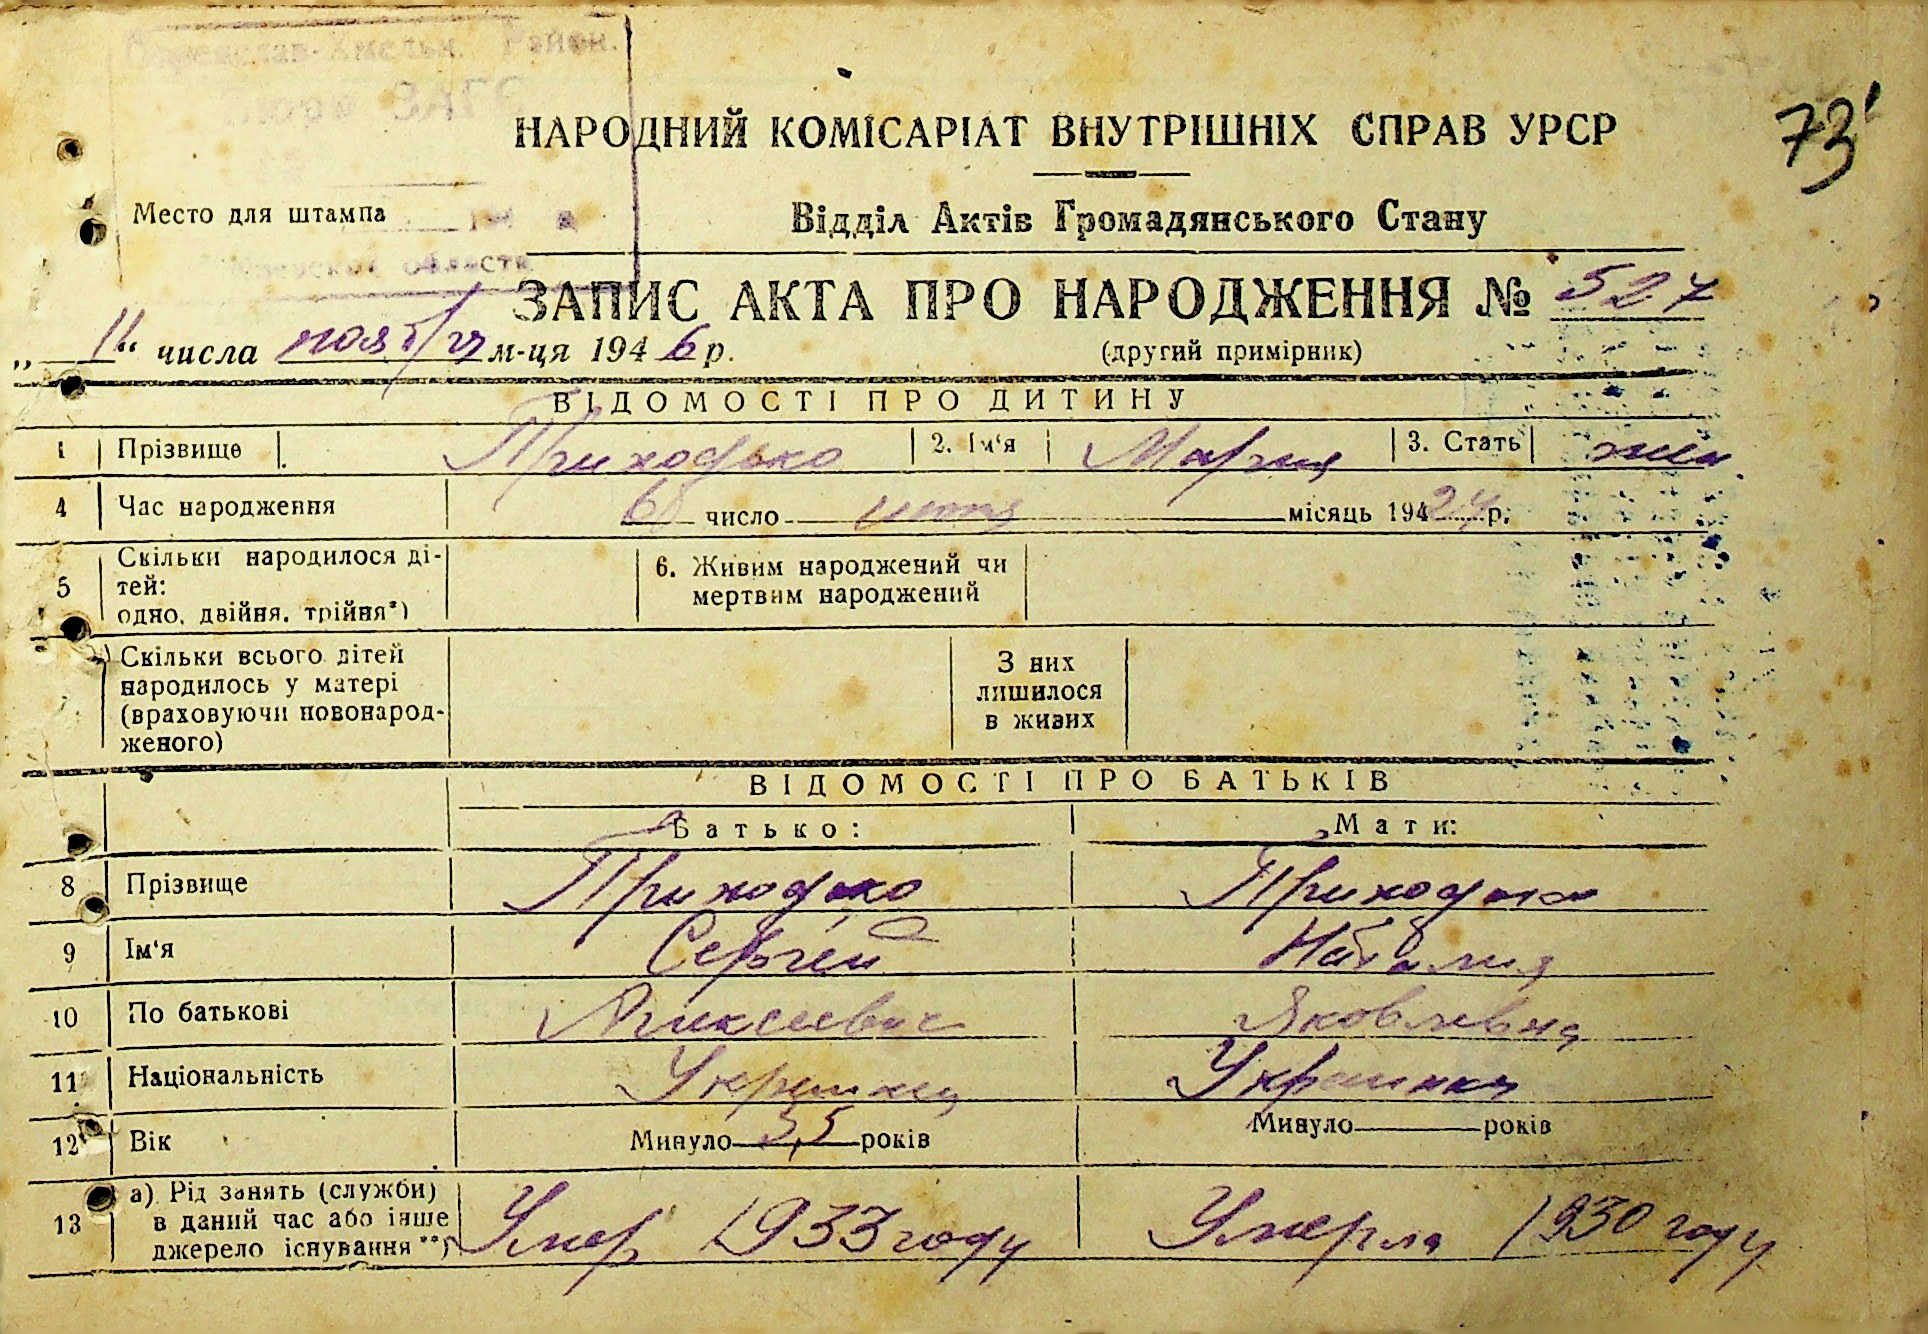 Район.
Бюро ЗАГС
73
НАРОДНИЙ КОМІСАРІАТ ВНУТРІШНІХ СПРАВ УРСР
Место для штампа
Відділ Актів Громадянського Стану
области
ЗАПИС АКТА ПРО НАРОДЖЕННЯ № 527
„ 11 “ числа ноября м-ця 1946 р. (другий примірник)
ВІДОМОСТІ ПРО ДИТИНУ
1 Прізвище Приходько 2. Ім'я Мария 3. Стать жен.
4 Час народження 6 число місяць 194 24 р.
5 Скільки народилося ді-
тей:
одно, двійня, трійня*)
6. Живим народжений чи
мертвим народжений
Скільки всього дітей
народилось у матері
(враховуючи новонарод-
женого)
З них
лишилося
в живих
ВІДОМОСТІ ПРО БАТЬКІВ
Батько: Мати:
8 Прізвище Приходько Приходько
9 Ім'я Сергей Наталия
10 По батькові Алексеевич Яковлевна
11 Національність Украинец Украинка
12 Вік Минуло 35 років Минуло років
13 а) Рід занять (служби)
в даний час або інше
джерело існування**)
Умер 1933 году Умерла 1930 году